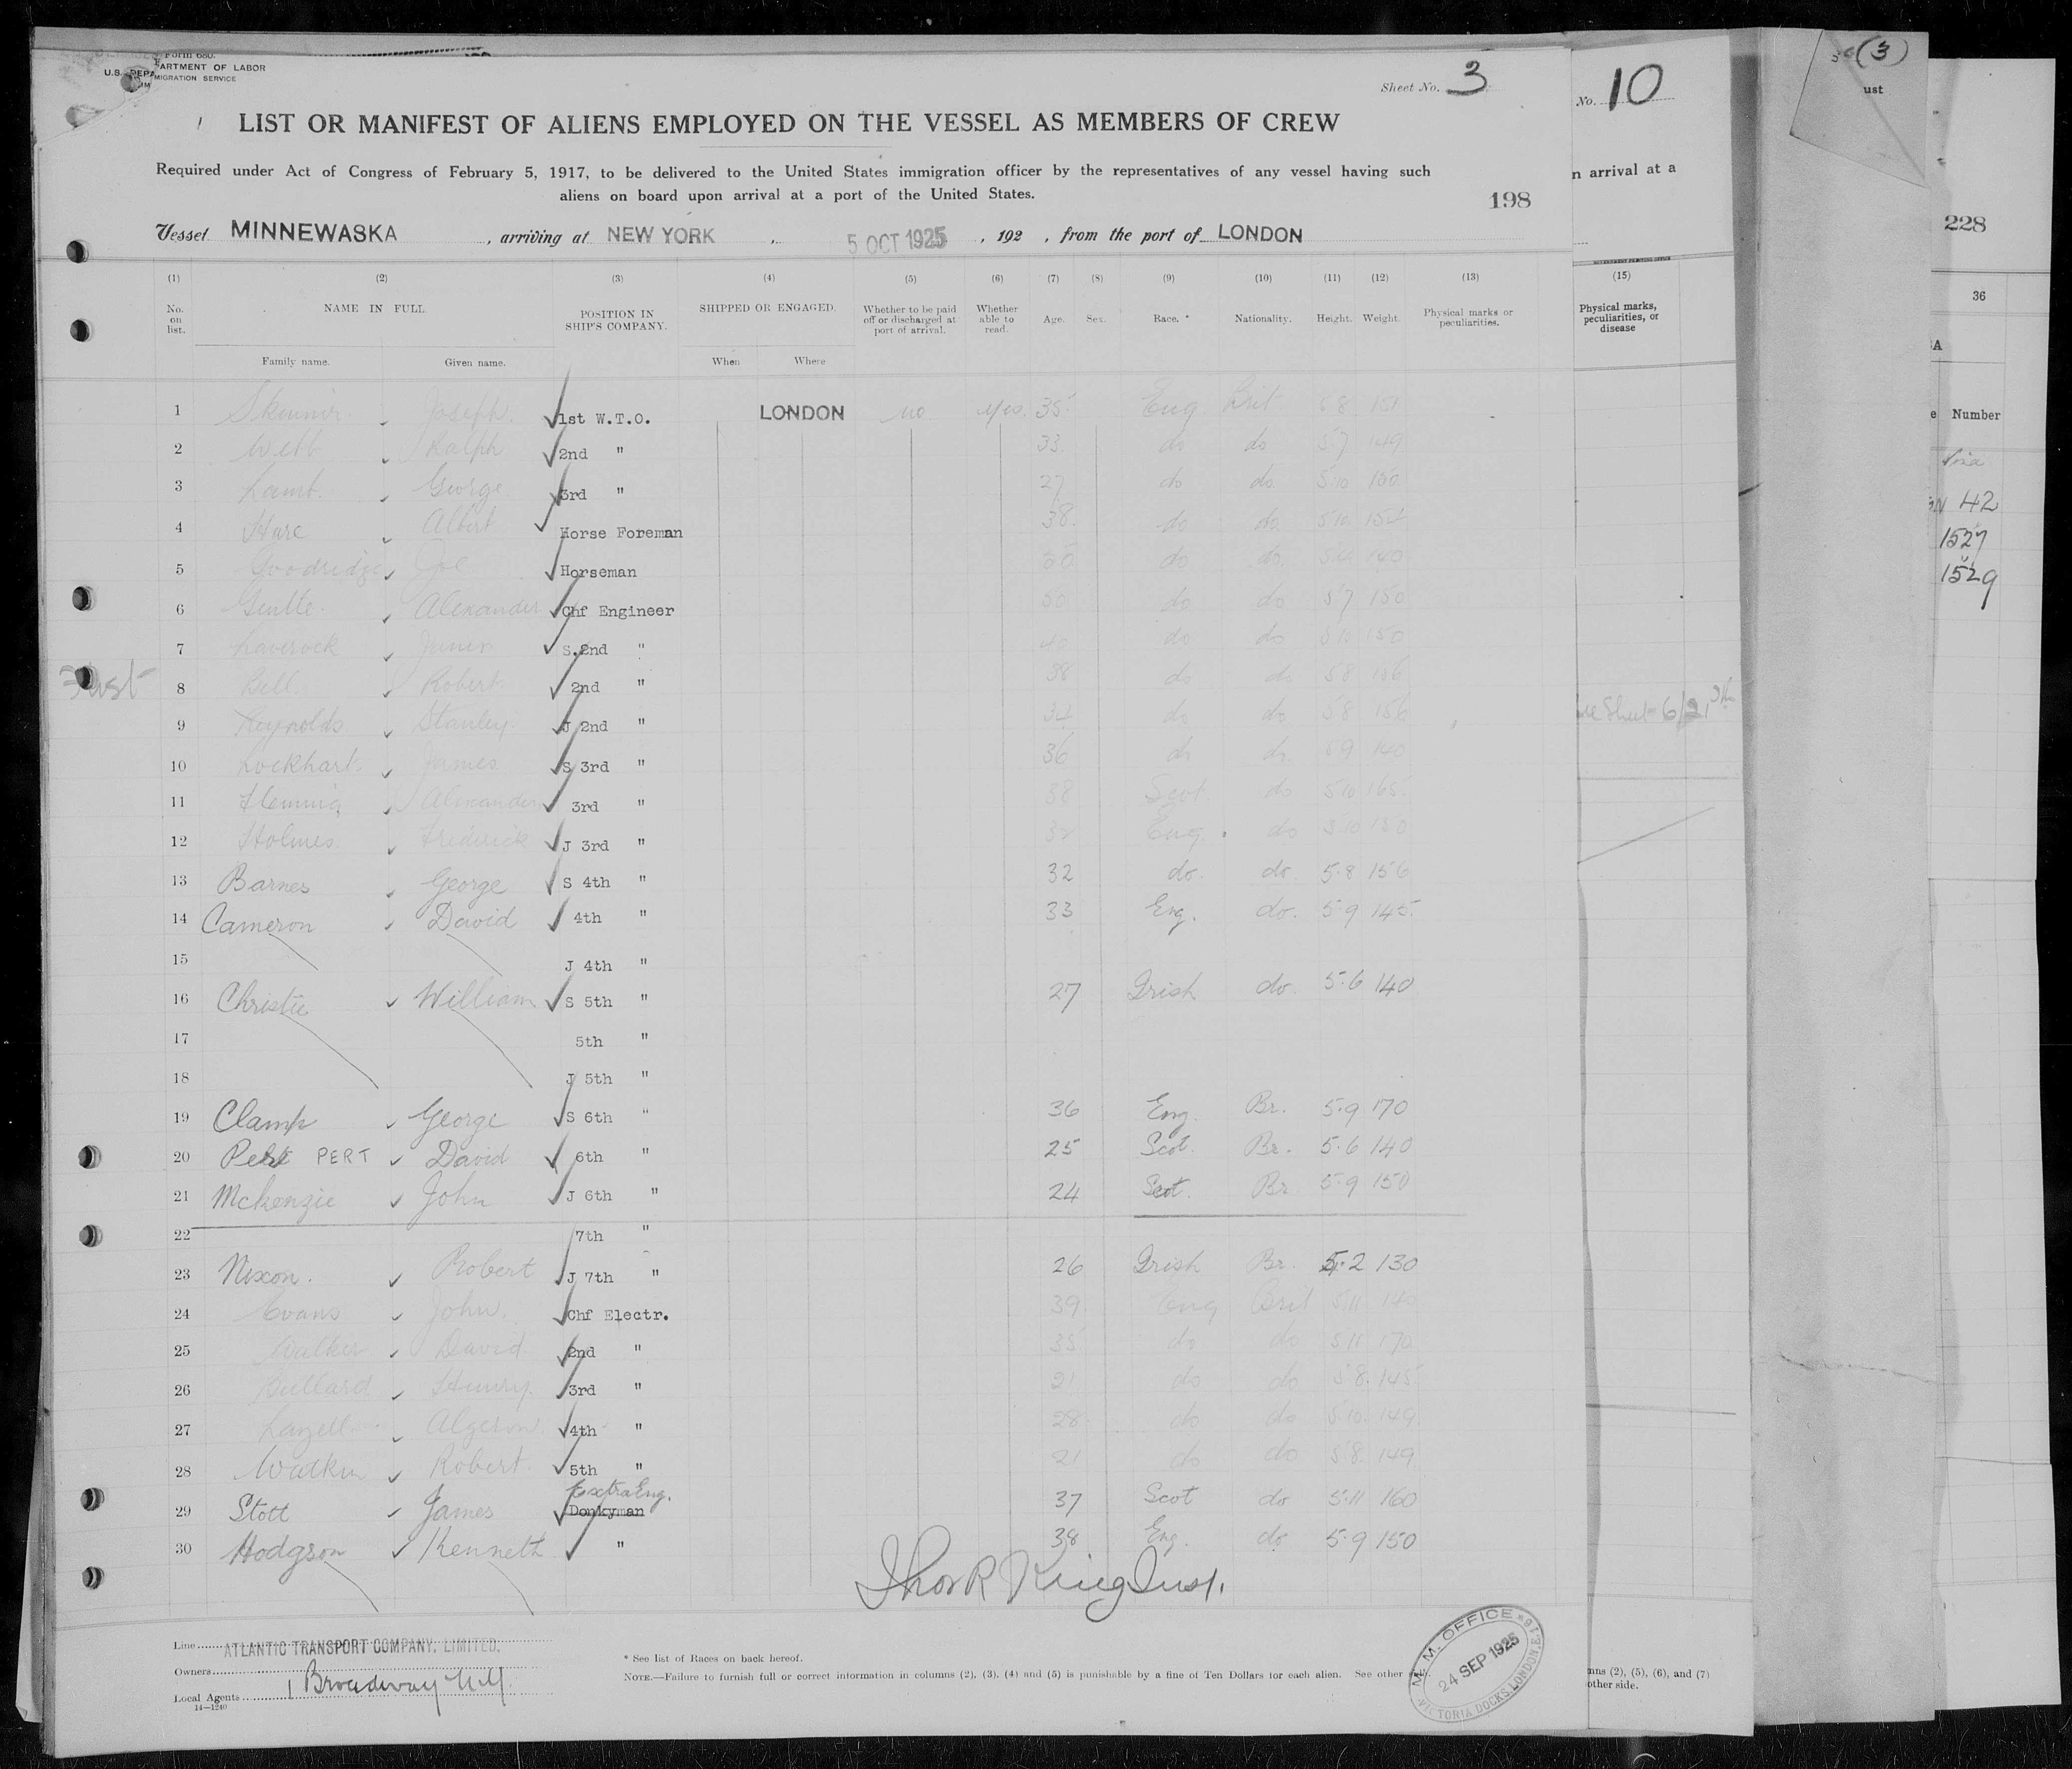 Form 680.
U.S. DEPARTMENT OF LABOR
IMMIGRATION SERVICE
Sheet No. 3
LIST OR MANIFEST OF ALIENS EMPLOYED ON THE VESSEL AS MEMBERS OF CREW
Required under Act of Congress of February 5, 1917, to be delivered to the United States immigration officer by the representatives of any vessel having such
aliens on board upon arrival at a port of the United States.
198
Vessel MINNEWASKA, arriving at NEW YORK, 5 OCT 1925, 192 , from the port of LONDON
(1) (2) (3) (4) (5) (6) (7) (8) (9) (10) (11) (12) (13)
No. on list. NAME IN FULL. POSITION IN SHIP'S COMPANY. SHIPPED OR ENGAGED. Whether to be paid off or discharged at port of arrival. Whether able to read. Age. Sex. Race. * Nationality. Height. Weight. Physical marks or peculiarities.
Family name. Given name. When Where
1 Skinner Joseph 1st W.T.O. LONDON no yes 35 Eng Brit 5 8 151
2 Webb Ralph 2nd " 33 do do 5 7 149
3 Lamb George 3rd " 27 do do 5 10 150
4 Hare Albert Horse Foreman 38 do do 5 10
5 Goodridge Joe Horseman do do 140
6 Gentle Alexander Chf Engineer 50 do do 5 7 150
7 Laverock James S.2nd " 40 do do 5 10 150
8 Bell Robert 2nd " 38 do do 5 8 156
9 Reynolds Stanley J 2nd " 34 do do 5 8 156
10 Lockhart James S 3rd " 36 do do 5 9 140
11 Fleming Alexander 3rd " 38 Scot do 5 10 165
12 Holmes Frederick J 3rd " 32 Eng. do 5 10 150
13 Barnes George S 4th " 32 do. do. 5.8 156
14 Cameron David 4th " 33 Eng. do. 5.9 145.
15 J 4th "
16 Christie William S 5th " 27 Irish do. 5.6 140
17 5th "
18 J 5th "
19 Clamp George S 6th " 36 Eng. Br. 5.9 170
20 PERT David 6th " 25 Scot. Br. 5.6 140
21 McKenzie John J 6th " 24 Scot. Br 5.9 150
22 7th "
23 Nixon. Robert J 7th " 26 Irish Br. 5.2 130
24 Evans John. Chf Electr. 39 Eng Brit 5.11 140
25 Walker David 2nd " 35 do do 5 11 170
26 Bullard Henry. 3rd " 21 do do 5.8. 145
27 Lazell Algeron 4th " 28 do do 5.10. 149.
28 Watkin Robert. 5th " 21 do do 5.8. 149
Extra Eng.
29 Stott James Donkyman 37 Scot do 5.11 160
30 Hodgson Kenneth " 38 Eng. do 5.9 150
Line ATLANTIC TRANSPORT COMPANY, LIMITED.
Owners
Local Agents 1 Broadway N.Y.
14—1240
* See list of Races on back hereof.
NOTE.—Failure to furnish full or correct information in columns (2), (3), (4) and (5) is punishable by a fine of Ten Dollars for each alien. See other
M. M. OFFICE
24 SEP 1925
VICTORIA DOCKS, LONDON, E.16
No. 10
n arrival at a
(15)
Physical marks,
peculiarities, or
disease
mns (2), (5), (6), and (7)
other side.
(3)
ust
228
36
A
e Number
42
1527
1529